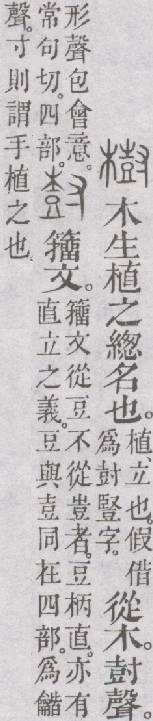 樹
木生植之總名也。
植、立也。假借
爲尌豎字。
從木。尌聲。
形聲包會意。
常句切。四部。
𡬾
籒文。
籒文從豆不從壴者。豆柄直。亦有
直立之義。豆與壴同在四部。爲龤
聲。寸則謂手植之也。